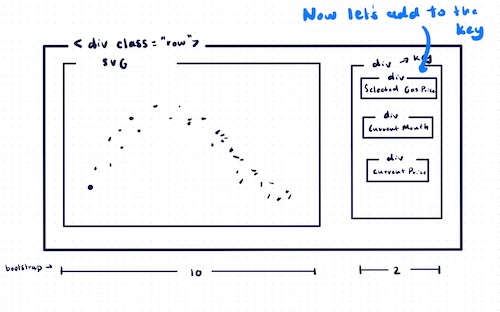 Now let's add to the
key
< div class = "row" >
SVG
div → key
div
Selected Gas Price
div
Current Month
div
Current Price
bootstrap →
10
2